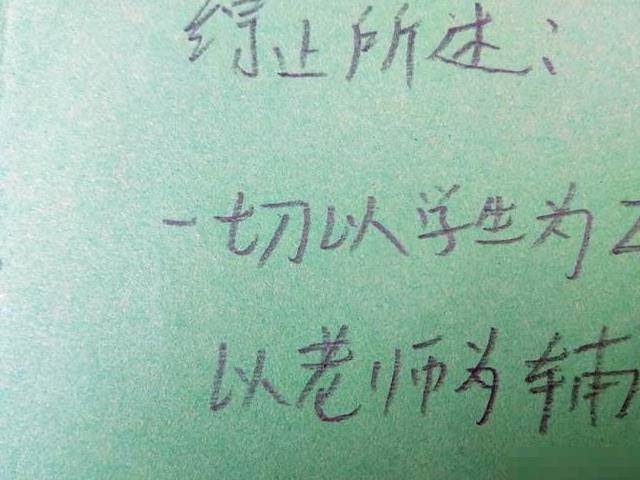 综上所述：
一切以学生为
以老师为辅